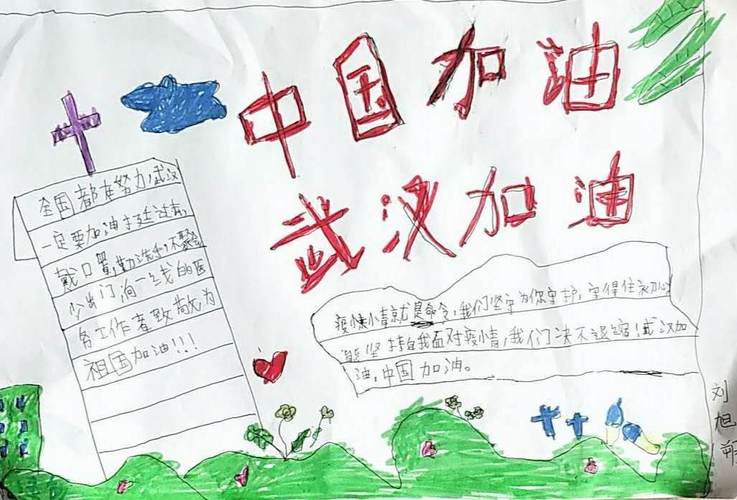 中国加油
武汉加油
全国都在努力,武汉
一定要加油挺过去,
戴口罩,勤洗手,不聚餐
少出门,向一线的医
务工作者致敬,为
祖国加油!!!
疫情就是命令,我们坚守为你守护,守得住初心
坚持自我面对疫情,我们决不退缩!武汉加
油,中国加油。
刘
旭